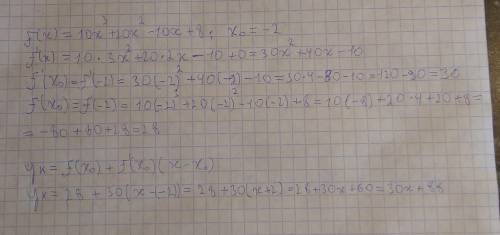 f(x) = 10x³+20x²-10x+8, x₀=-2
f(x) = 10·3x²+20·2x-10+0=30x²+40x-10
f'(x₀)=f'(-2)=30(-2)²+40(-2)-10=30·4-80-10=120-90=30
f(x₀)=f(-2)=10(-2)³+20(-2)²-10(-2)+8=10(-8)+20·4+20+8=
=-80+80+28=28
yк=f(x₀)+f'(x₀)(x-x₀)
yк=28+30(x-(-2))=28+30(x+2)=28+30x+60=30x+88